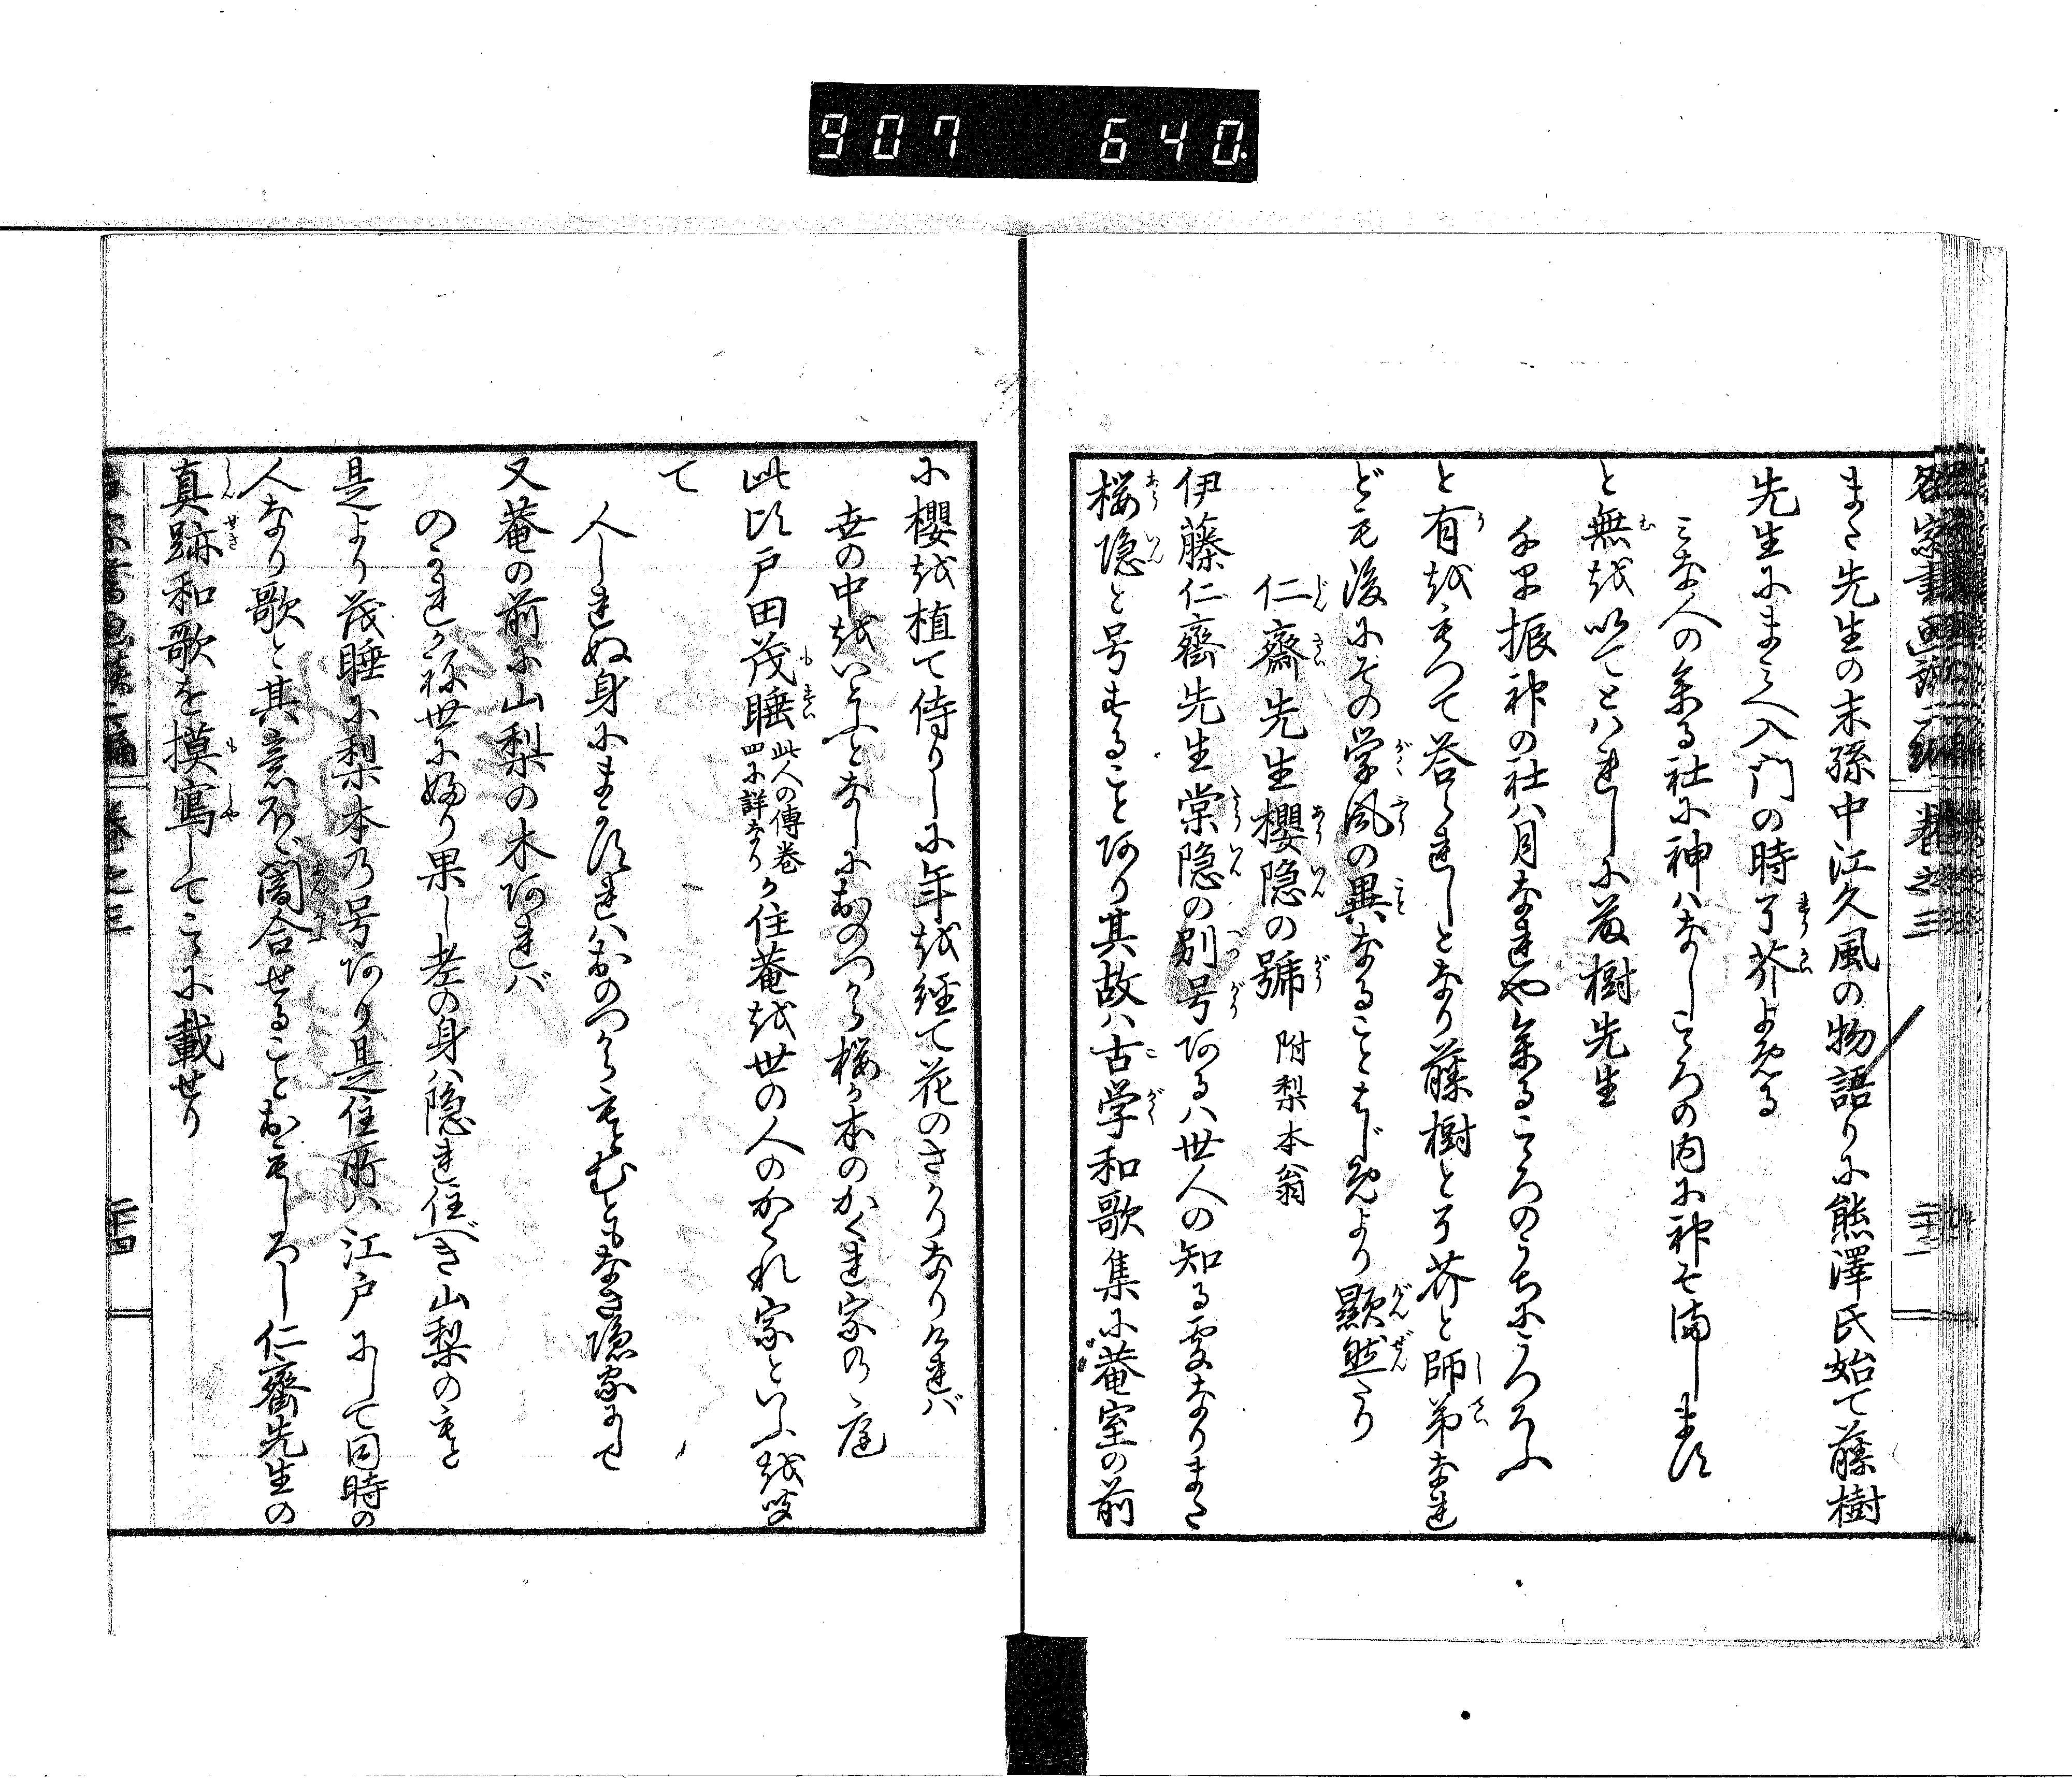 907 640
また先生の末孫中江久風の物語りに熊澤氏始て藤樹
先生にまみへ入門の時了芥よめる
みな人の参る社に神ハなしこゝろの内に神そ満します
と無を以てとはれしに藤樹先生
千早振神の社ハ月なれや参るこゝろのうちにうつろふ
と有をもつて答られしとなり藤樹と了芥と師弟なれ
ども後にその学風の異なることはじめより顕然たり
仁齋先生櫻隠の號 附梨本翁
伊藤仁齋先生棠隠の別号あるハ世人の知る処なりまた
桜隠と号すること有り其故ハ古学和歌集に菴室の前
に櫻を植て侍りしに年を経て花のさかりなりけれバ
世の中をいとふとなしにおのつから桜か本のかくれ家の庭
此比戸田茂睡 此人の傳巻四に詳なり か住菴を世の人のかくれ家といふを聞
て
人しれぬ身にまかすれハおのつからもとむともなき隠家にして
又菴の前に山梨の木あれバ
のかれかね世にふり果し老の身ハ隠れ住べき山梨のもと
是より茂睡に梨本乃号あり是住所ハ江戸にして同時の
人なり歌と其意不レ闇合せることおもしろし仁齋先生の
真跡和歌を摸寫してこゝに載せり
巻之三